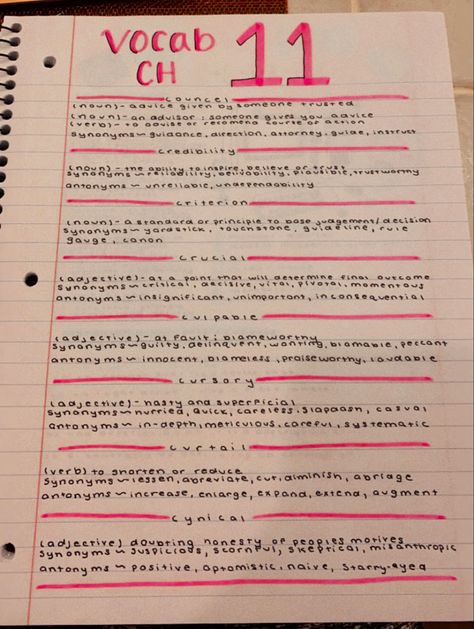 Vocab
CH 11
councel
(noun) - advice given by someone trusted
(noun) - an advisor ; someone gives you advice
(verb) - to advise or recomend course of action
Synonyms ~ guidance, direction, attorney, guide, instruct
credibility
(noun) - the ability to inspire, believe or trust
Synonyms ~ reliability, plausible, trustworthy
antonyms ~ unreliable, undependability
criterion
(noun) - a standard or principle to base judgement/decision
Synonyms ~ yardstick, touchstone, guideline, rule
gauge, canon
crucial
(adjective) - at a point that will determine final outcome
Synonyms ~ critical, decisive, vital, pivotal, momentous
antonyms ~ insignificant, unimportant, inconsequential
culpable
(adjective) - at fault ; blameworthy
Synonyms ~ guilty, delinquent, wanting, blamable, peccant
antonyms ~ innocent, blameless, praiseworthy, laudable
cursory
(adjective) - hasty and superficial
Synonyms ~ hurried, quick, careless, slapdash, casual
antonyms ~ in-depth, meticulous, careful, systematic
curtail
(verb) to shorten or reduce
Synonyms ~ lessen, abreviate, cut, diminish, abridge
antonyms ~ increase, enlarge, expand, extend, augment
cynical
(adjective) doubting honesty of peoples motives
Synonyms ~ suspicious, scornful, skeptical, misanthropic
antonyms ~ positive, optomistic, naive, starry-eyed